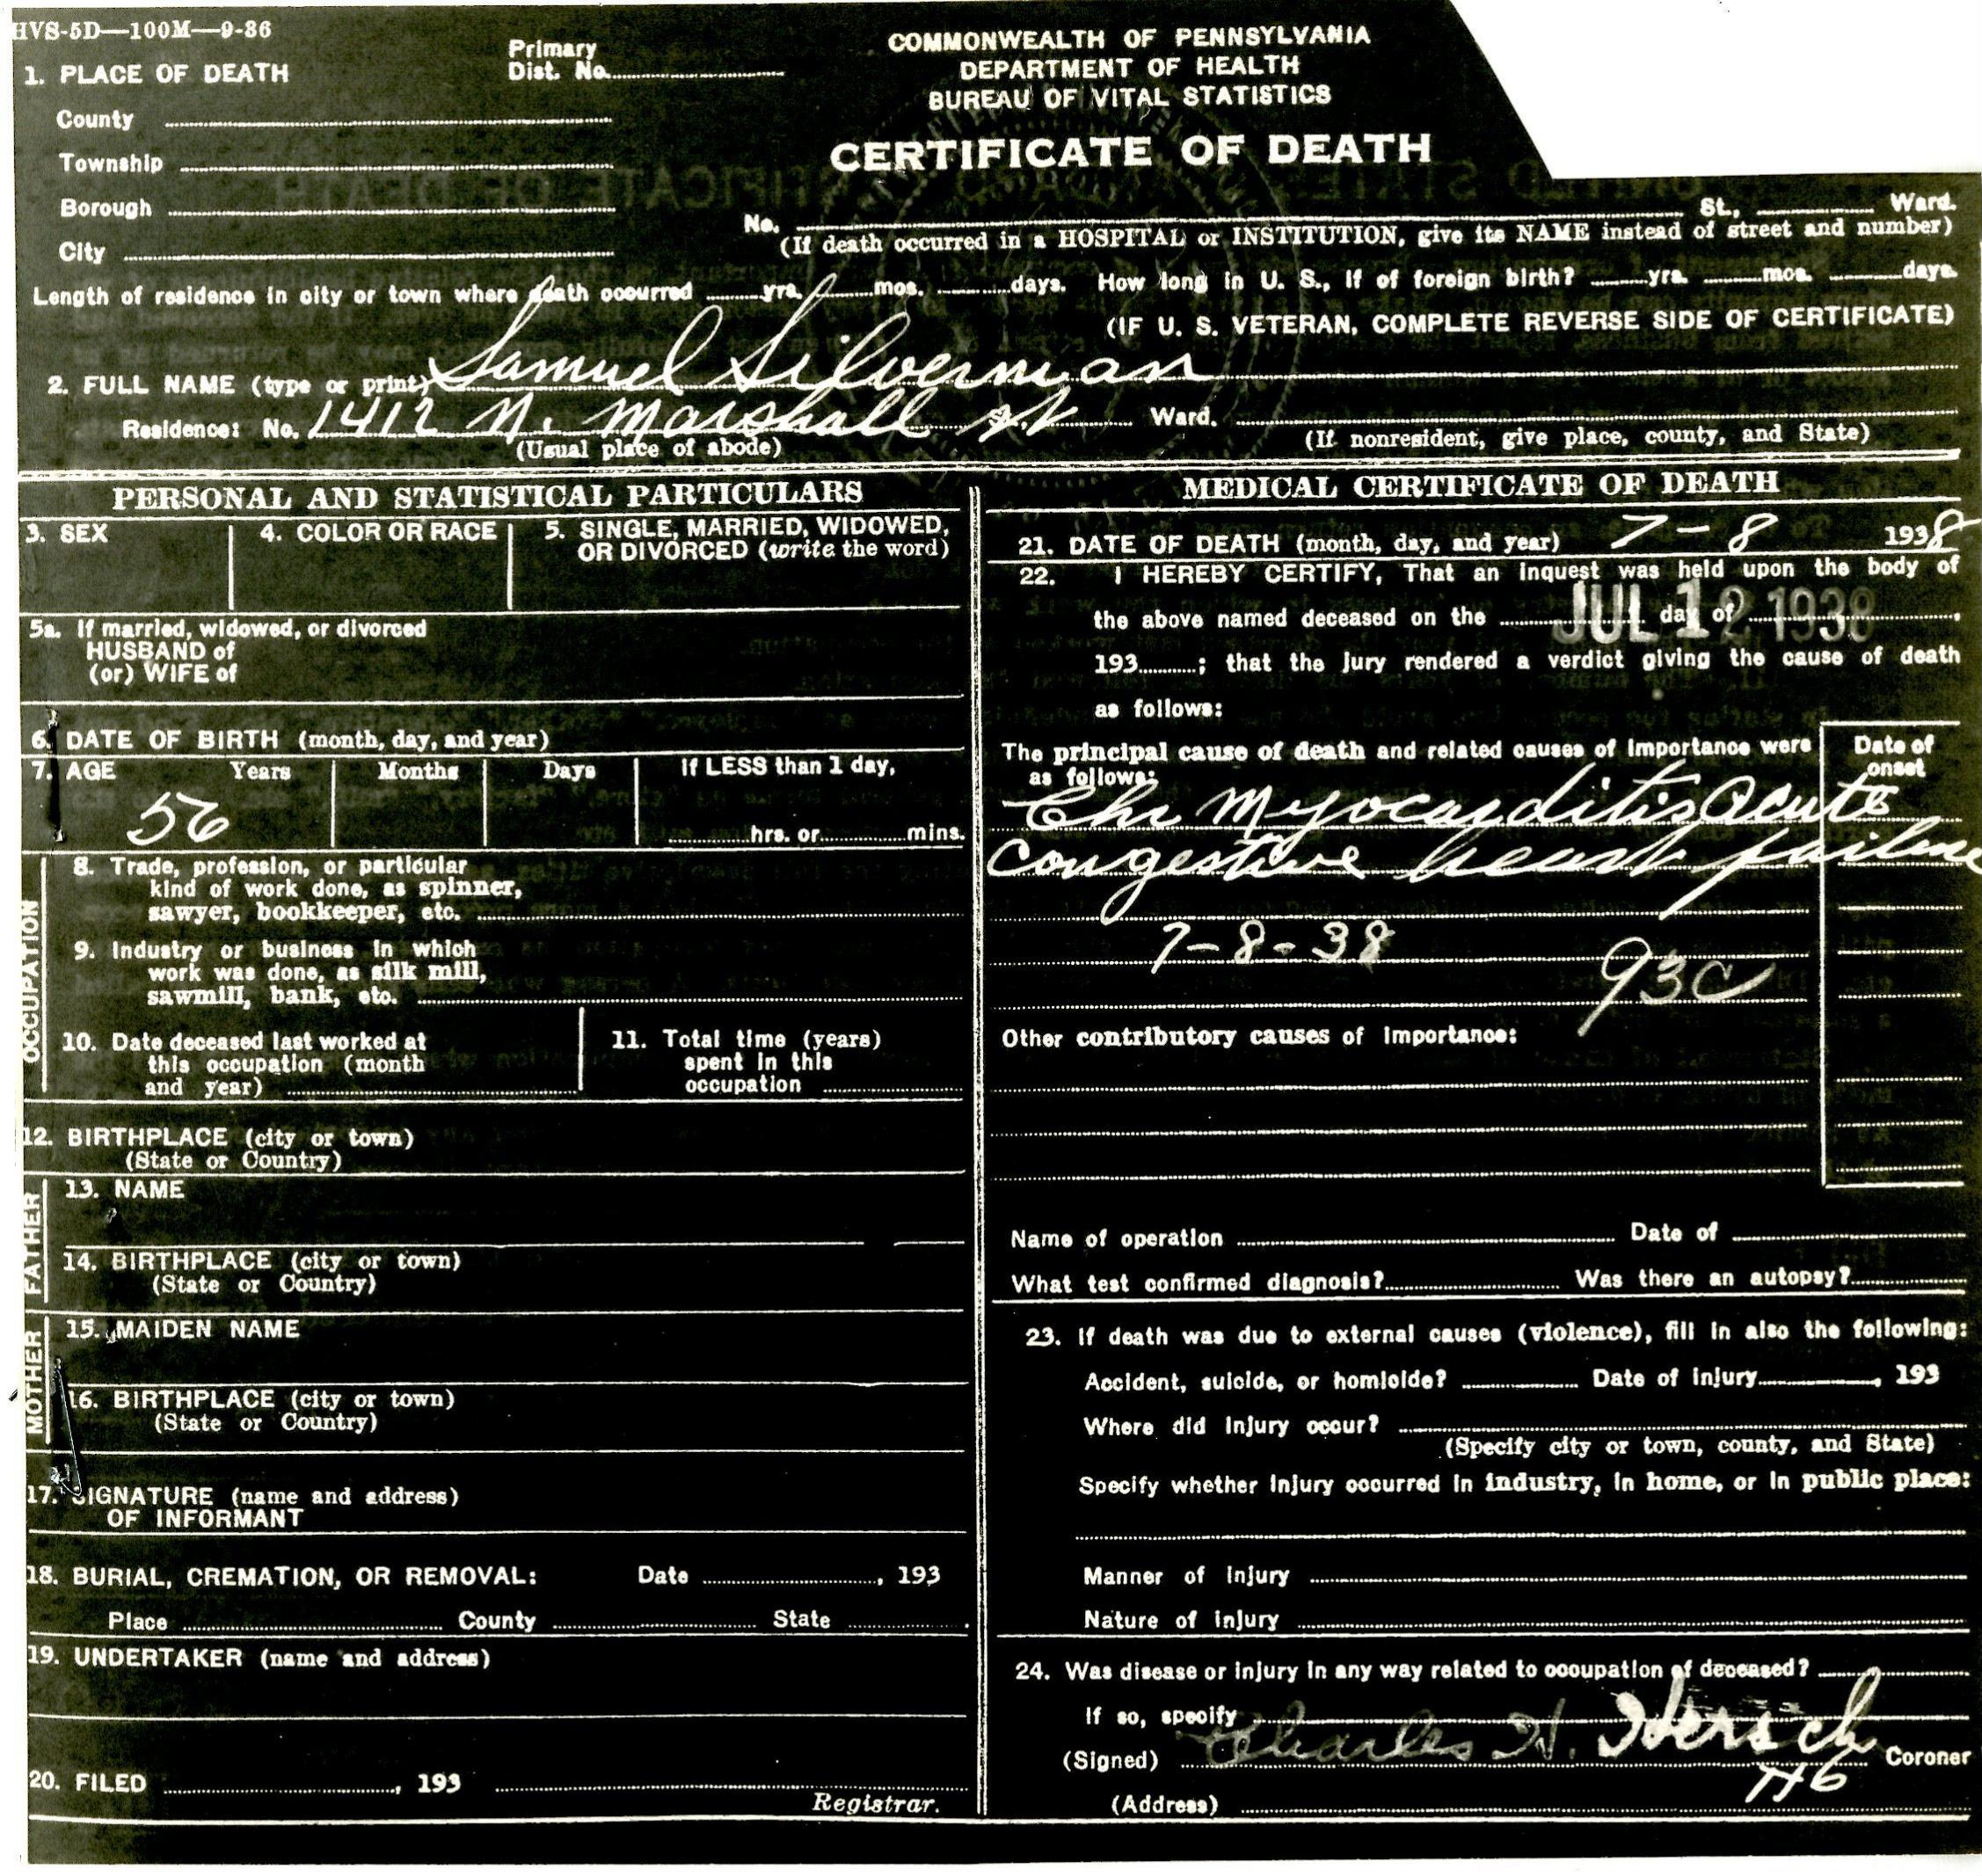 HVS-5D—100M—9-36
COMMONWEALTH OF PENNSYLVANIA
DEPARTMENT OF HEALTH
BUREAU OF VITAL STATISTICS
CERTIFICATE OF DEATH
Primary
Dist. No.
1. PLACE OF DEATH
County
Township
Borough
City
No. St., Ward.
(If death occurred in a HOSPITAL or INSTITUTION, give its NAME instead of street and number)
Length of residence in city or town where death occurred yrs. mos. days. How long in U. S., if of foreign birth? yrs. mos. days.
(IF U. S. VETERAN, COMPLETE REVERSE SIDE OF CERTIFICATE)
2. FULL NAME (type or print) Samuel Silverman
Residence: No. 1412 N. Marshall St Ward.
(Usual place of abode) (If nonresident, give place, county, and State)
PERSONAL AND STATISTICAL PARTICULARS
3. SEX
4. COLOR OR RACE
5. SINGLE, MARRIED, WIDOWED,
OR DIVORCED (write the word)
5a. If married, widowed, or divorced
HUSBAND of
(or) WIFE of
6. DATE OF BIRTH (month, day, and year)
7. AGE Years Months Days If LESS than 1 day,
56 hrs. or mins.
OCCUPATION
8. Trade, profession, or particular
kind of work done, as spinner,
sawyer, bookkeeper, etc.
9. Industry or business in which
work was done, as silk mill,
sawmill, bank, etc.
10. Date deceased last worked at
this occupation (month
and year)
11. Total time (years)
spent in this
occupation
12. BIRTHPLACE (city or town)
(State or Country)
FATHER
13. NAME
14. BIRTHPLACE (city or town)
(State or Country)
MOTHER
15. MAIDEN NAME
16. BIRTHPLACE (city or town)
(State or Country)
17. SIGNATURE (name and address)
OF INFORMANT
18. BURIAL, CREMATION, OR REMOVAL: Date , 193
Place County State
19. UNDERTAKER (name and address)
20. FILED , 193
Registrar.
MEDICAL CERTIFICATE OF DEATH
21. DATE OF DEATH (month, day, and year) 7-8 1938
22. I HEREBY CERTIFY, That an inquest was held upon the body of
the above named deceased on the JUL 12 1938 day of ,
193 ; that the jury rendered a verdict giving the cause of death
as follows:
The principal cause of death and related causes of importance were
as follows:
Date of
onset
Chr Myocarditis Acute
Congestive heart failure
7-8-38
93c
Other contributory causes of importance:
Name of operation Date of
What test confirmed diagnosis? Was there an autopsy?
23. If death was due to external causes (violence), fill in also the following:
Accident, suicide, or homicide? Date of injury , 193
Where did injury occur?
(Specify city or town, county, and State)
Specify whether injury occurred in industry, in home, or in public place:
Manner of injury
Nature of injury
24. Was disease or injury in any way related to occupation of deceased?
If so, specify
(Signed) Charles H. Hersch Coroner
(Address)